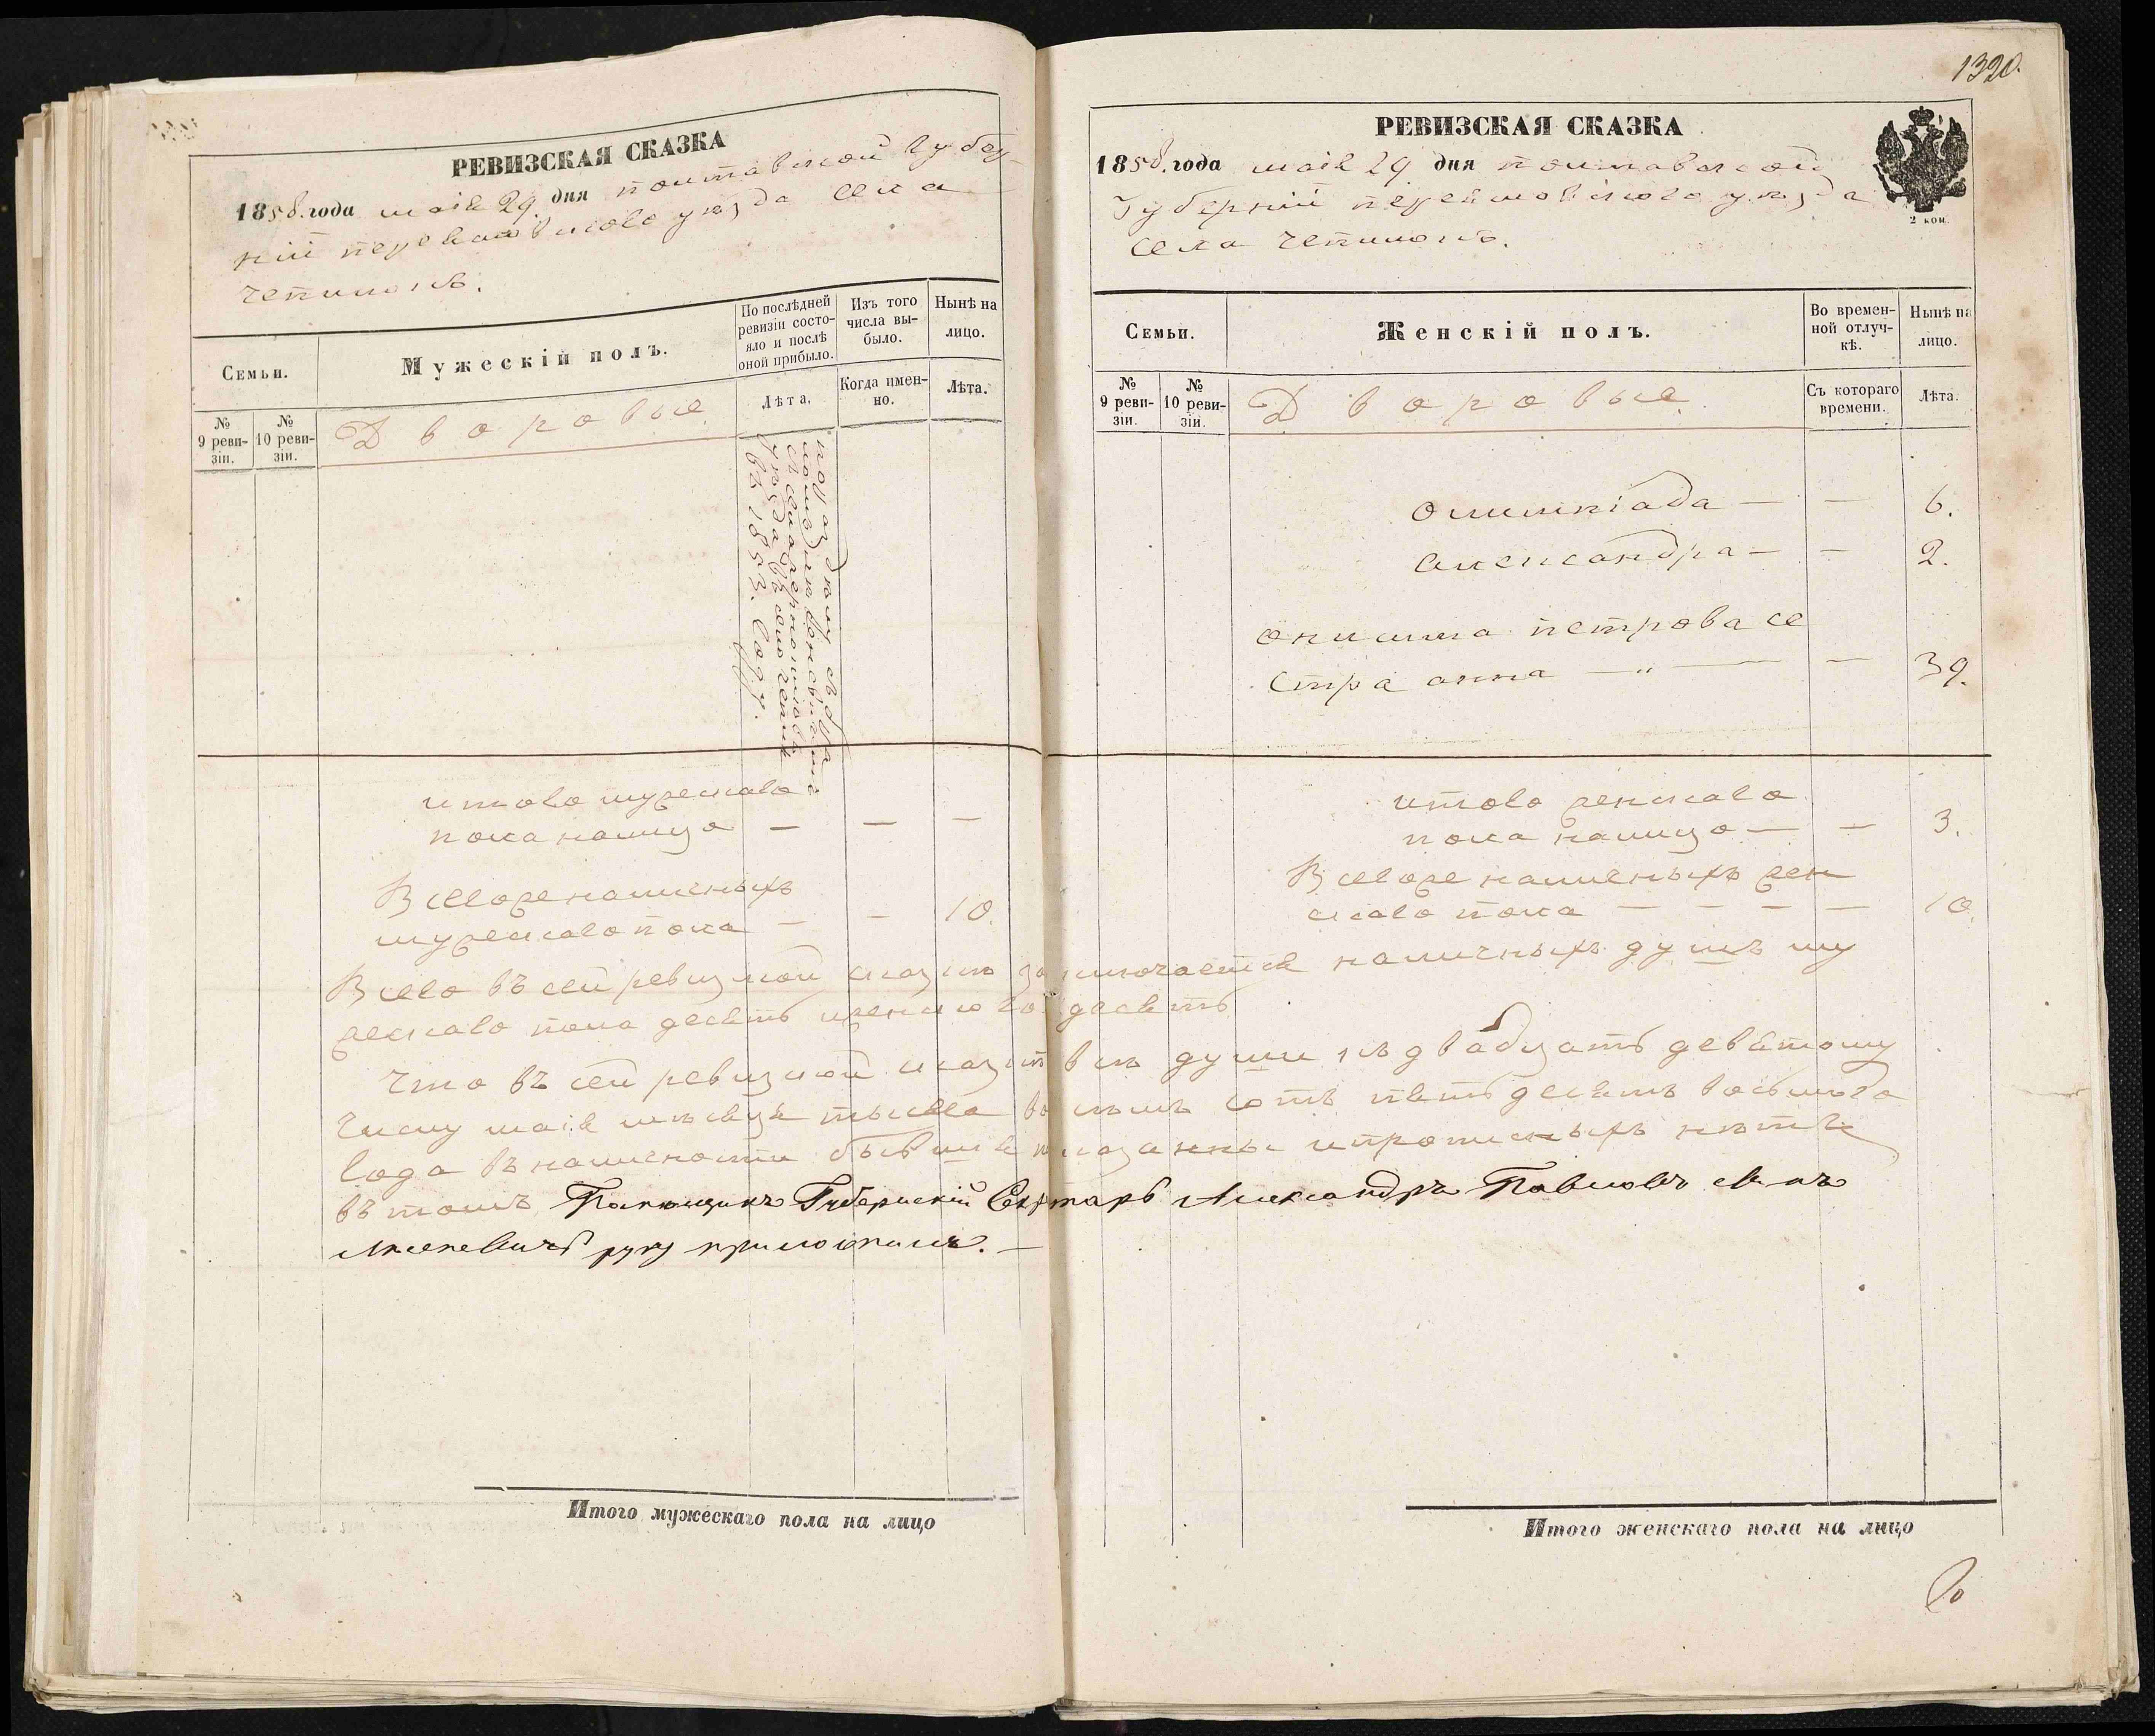 РЕВИЗСКАЯ СКАЗКА
1858. года маія 29 дня полтавской губер-
ніи переяславского уезда села
чепилокъ.
Семьи.
Мужескій полъ.
По послѣдней ревизіи состо-яло и послѣ оной прибыло.
Изъ того числа вы-было.
Нынѣ на лицо.
№ 9 реви-зіи.
№ 10 реви-зіи.
Дворовые
Лѣта.
Когда имен-но.
Лѣта.
въ 1853. году.
итого мужескаго
пола налицо — — —
Всегоже наличныхъ
мужескаго пола — — 10.
Итого мужескаго пола на лицо
1320.
РЕВИЗСКАЯ СКАЗКА
1858. года маія 29 дня полтавской
Губерніи переяславского уезда
села чепилокъ.
2 коп
Семьи.
Женскій полъ.
Во времен-ной отлуч-кѣ.
Нынѣ на лицо.
№ 9 реви-зіи.
№ 10 реви-зіи.
Дворовые
Съ котораго времени.
Лѣта.
олимпіада — — 6.
александра — — 2.
онисима петрова се
стра анна — „ — — 39.
итого женскаго
пола налицо — — 3.
Всегоже наличныхъ жен
скаго пола — — — — 10.
Всего въ сей ревизской сказкѣ заключается наличныхъ душъ му
жескаго пола десять иженскаго десять
Что въ сей ревизской сказкѣ всѣ души къ двадцать девятому
числу маія мѣсяця тысяча восѣмъ сотъ пятьдесятъ восьмого
года въ наличности бывшія показанны ипрописныхъ нѣтъ
въ томъ Помющикъ Губернский Секретарь Александръ Павловъ сынъ
руку приложилъ. —
Итого женскаго пола на лицо